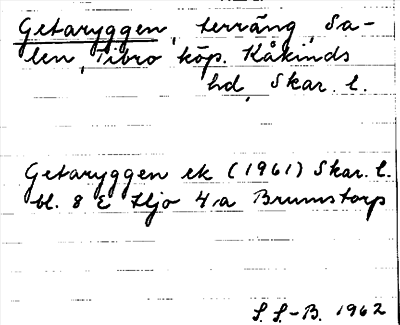 Getaryggen, terräng, Sa-
len, Tibro köp. Kåkinds
hd, Skar. l.
Getaryggen ek (1961) Skar. l.
bl. 8 E Hjo 4a Brumstorp
S. S.-B. 1962